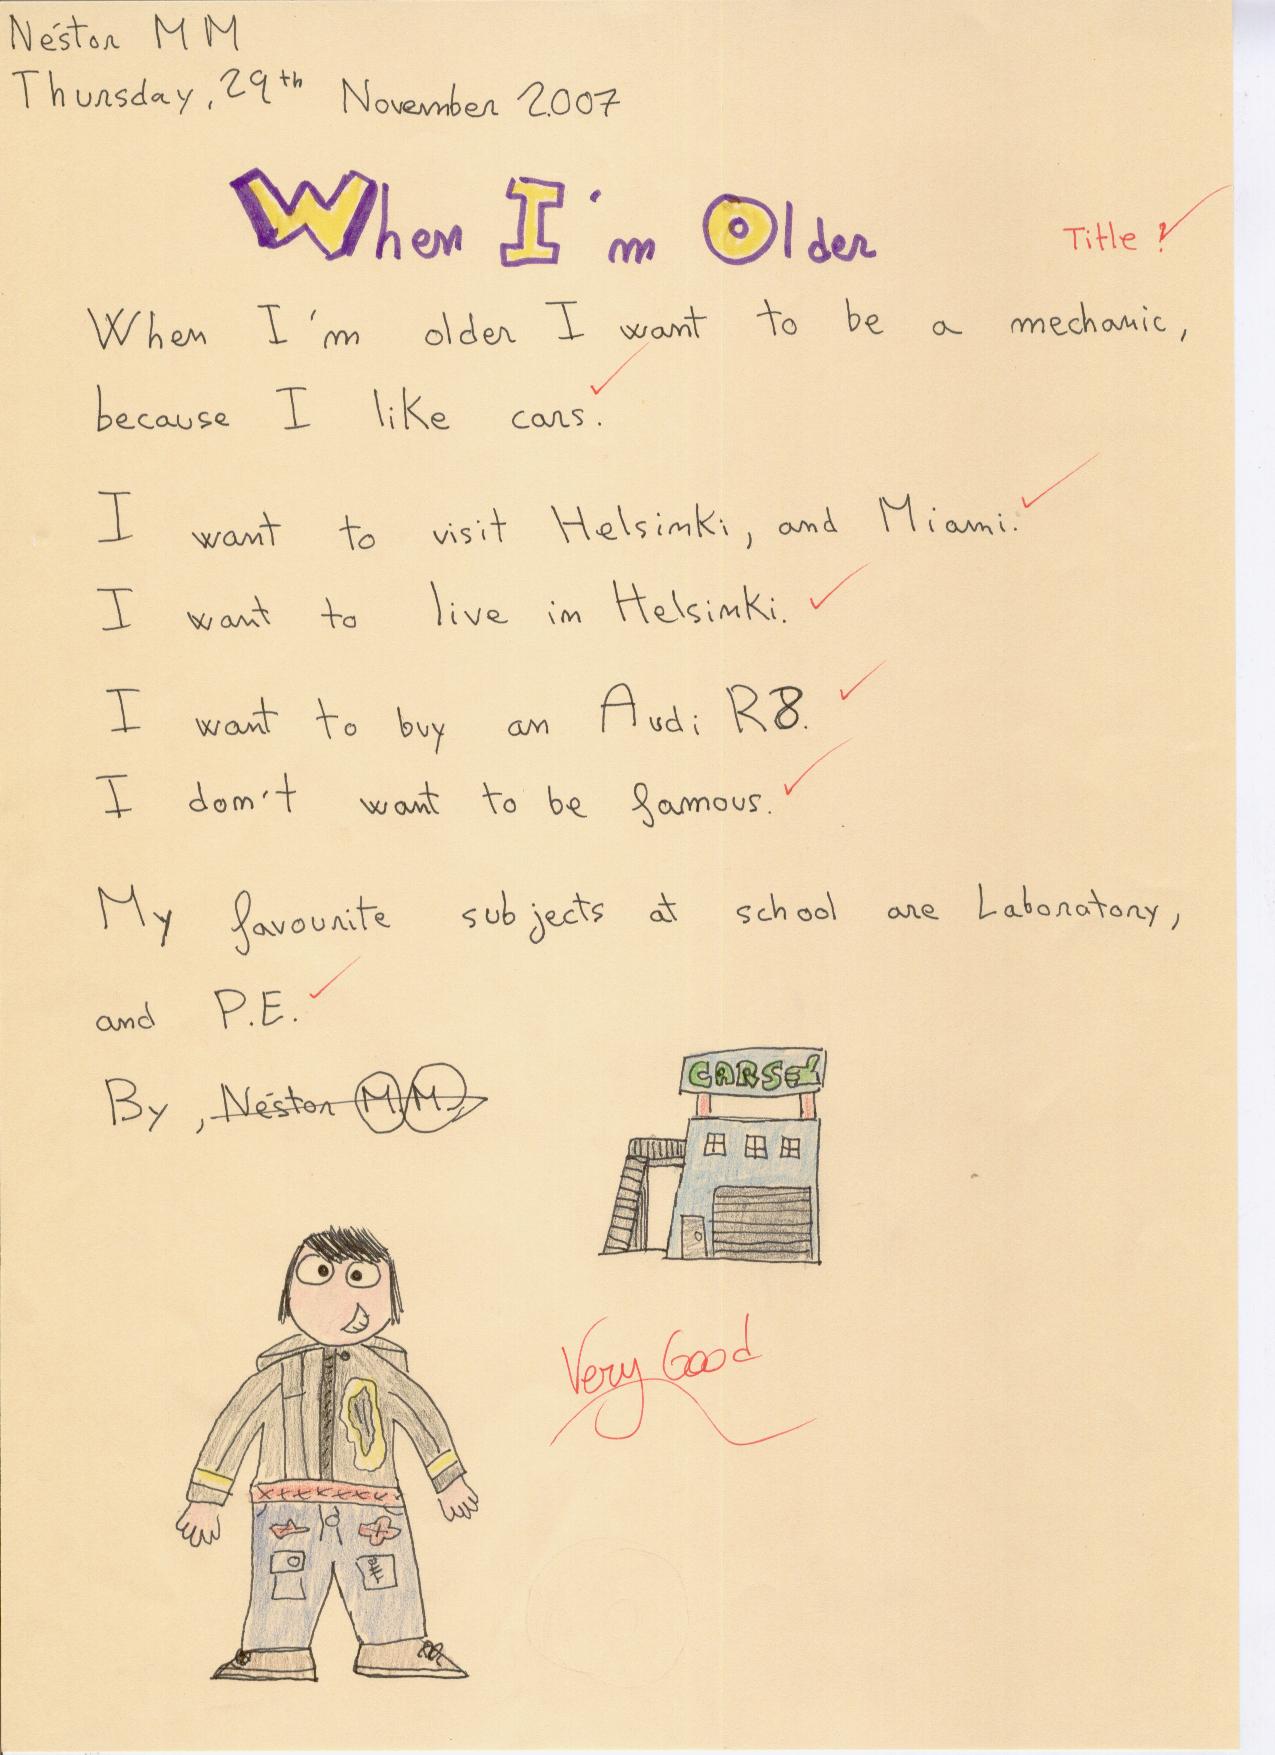 Néstor M M
Thursday, 29th November 2007
When I'm Older
Title?
When I'm older I want to be a mechanic,
because I like cars.
I want to visit Helsinki, and Miami.
I want to live in Helsinki.
I want to buy an Audi R8.
I don't want to be famous.
My favourite subjects at school are Laboratory,
and P.E.
By, Néstor M.M.
CARS
Very Good